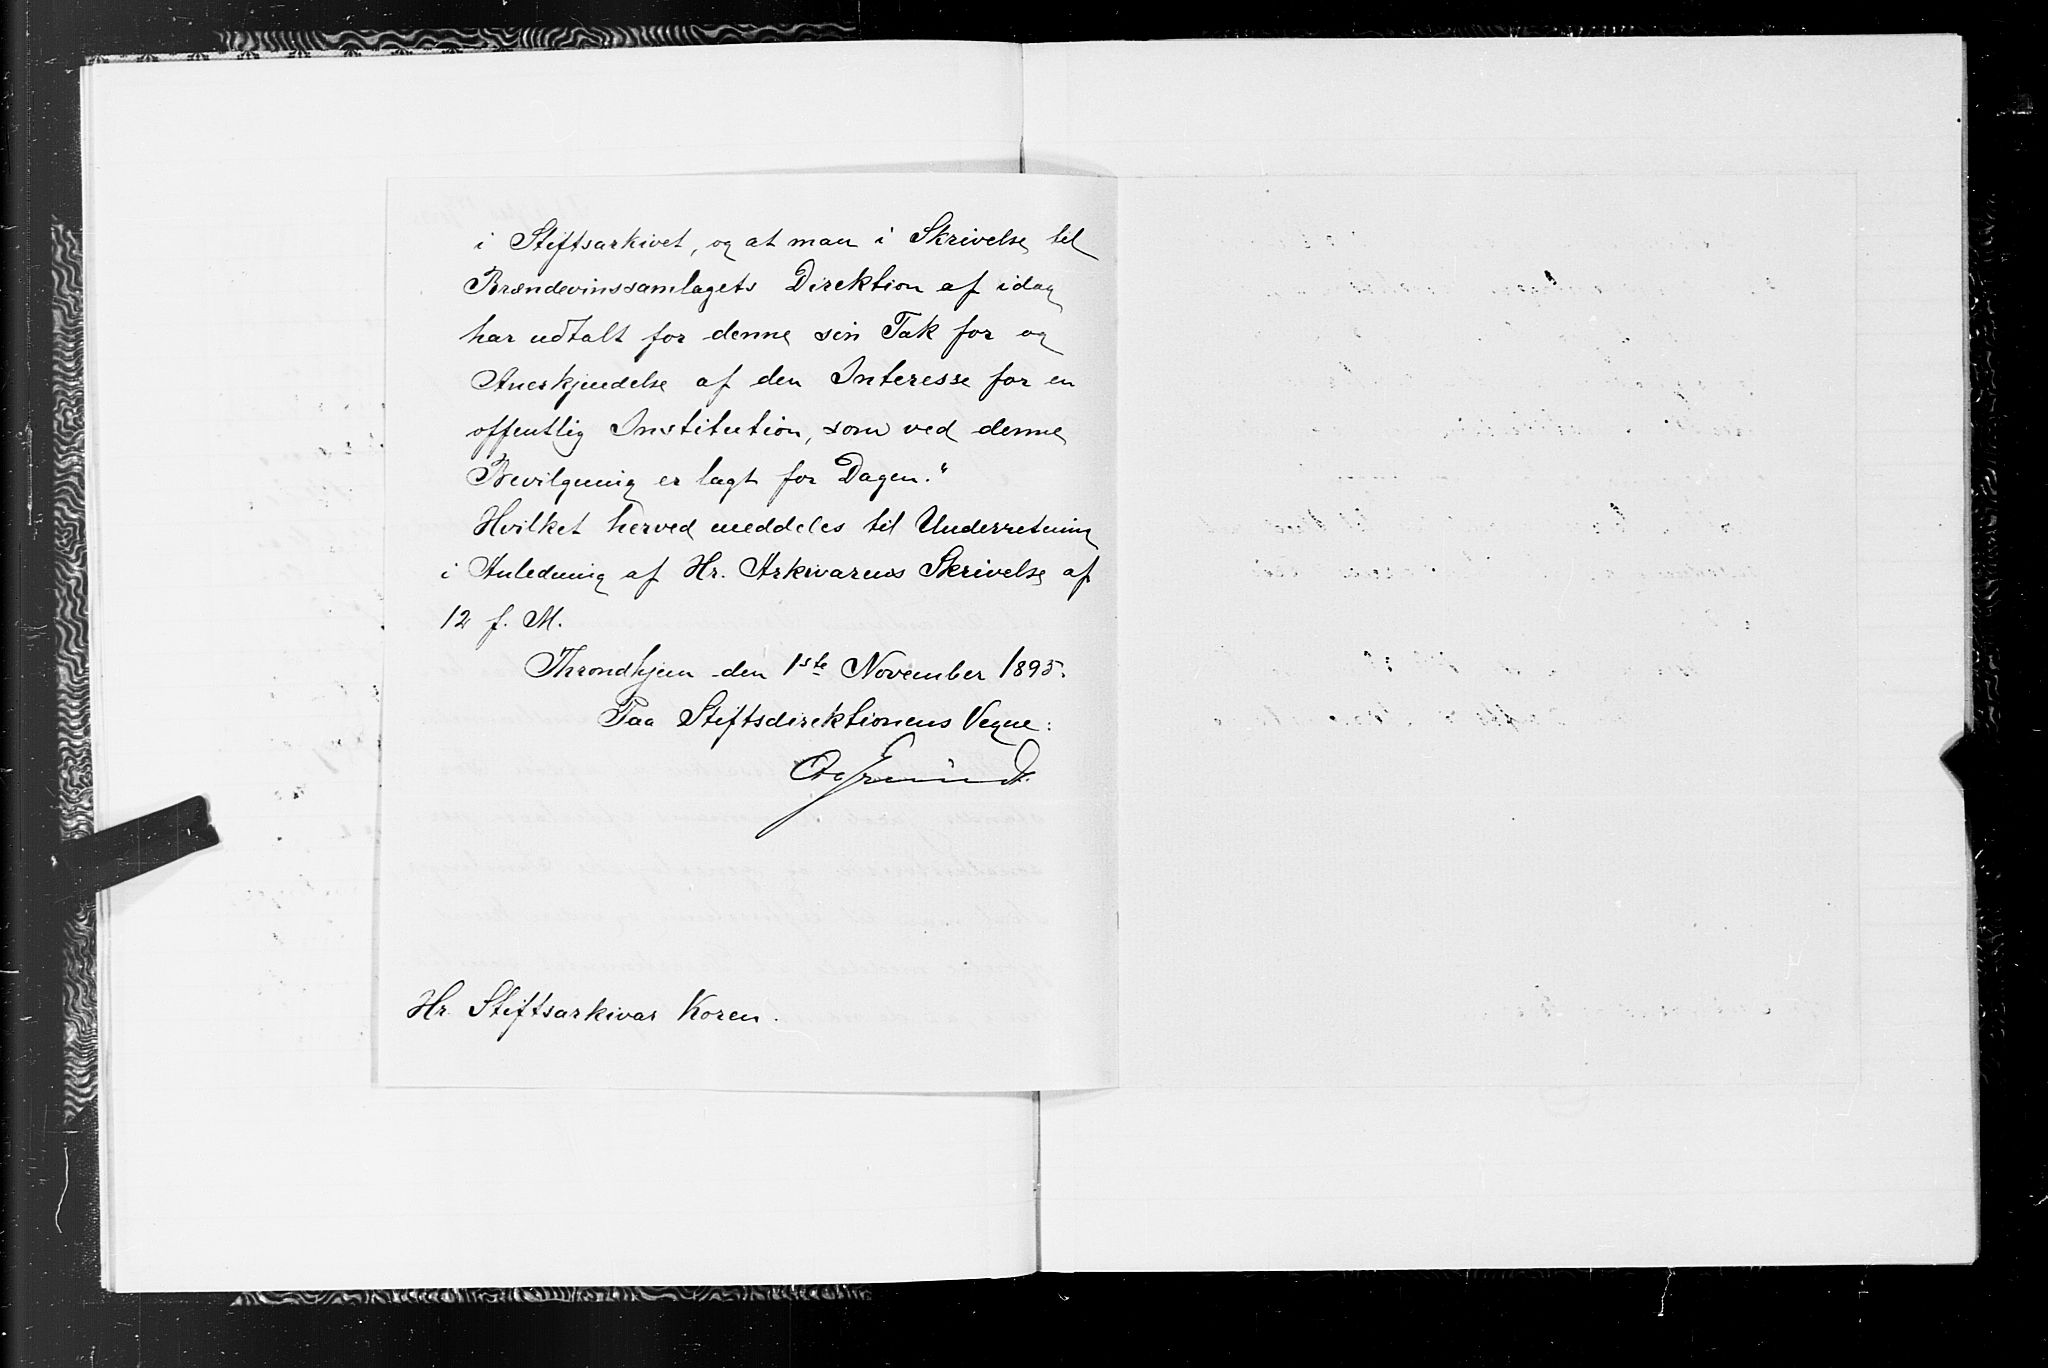 i Stiftsarkivet, og at man i Skrivelse til
Brændevinssamlagets Direktion af idag
har udtalt for denne sin Tak for og
Anerkjendelse af den Interesse for en
offentlig Institution, som ved denne
Bevilgning er lagt for Dagen."
Hvilket herved meddeles til Underretning
i Anledning af Hr. Arkivarens Skrivelse af
12 f. M.
Throndhjem den 1ste November 1895.
Paa Stiftsdirektionens Vegne:
Hr. Stiftsarkivar Koren.